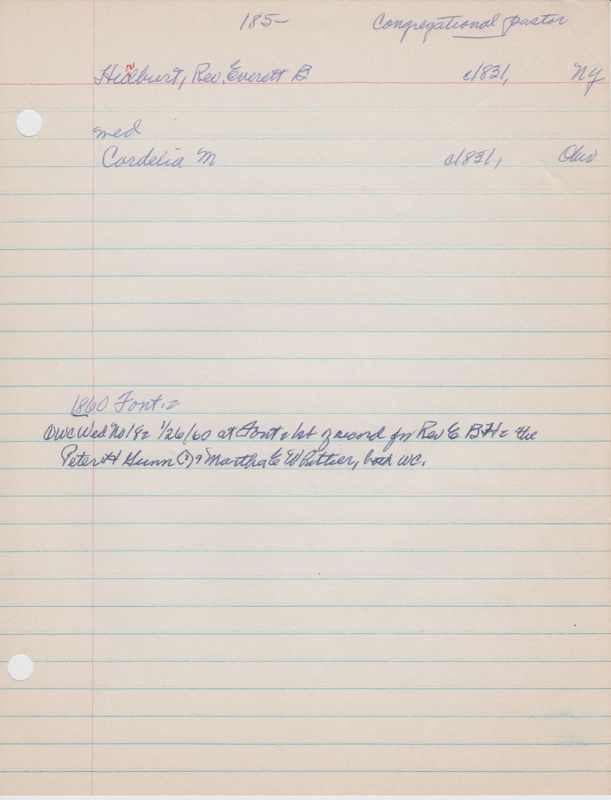 185- Congregational pastor
Hidlburt, Rev. Everett B c1831, NY
med
Cordelia M c1831, Ohio
1860 Font
Wed No 182 1/26/60 at Font 1st record for Rev E B H the
Peter H Gunn (?) & Martha E Whittier, both WC.